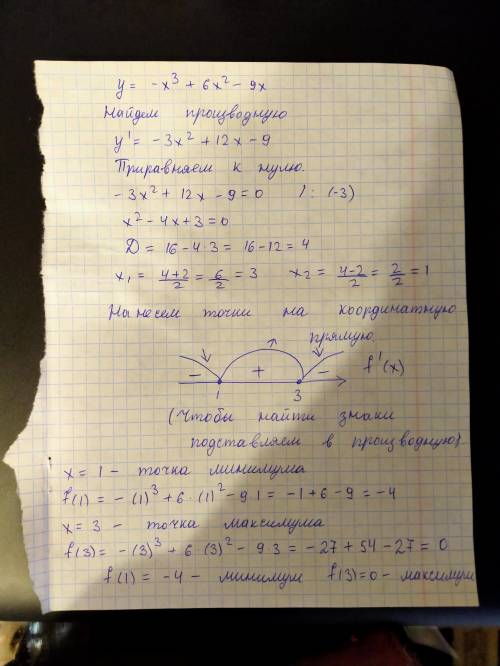 y = -x³ + 6x² - 9x
Найдем производную
y' = -3x² + 12x - 9
Приравняем к нулю.
-3x² + 12x - 9 = 0 /: (-3)
x² - 4x + 3 = 0
D = 16 - 4·3 = 16 - 12 = 4
x₁ = (4+2)/2 = 6/2 = 3 x₂ = (4-2)/2 = 2/2 = 1
Нанесем точки на координатную
прямую.
- + - f'(x)
1 3
(Чтобы найти знаки
подставляем в производную).
x = 1 - точка минимума
f(1) = -(1)³ + 6·(1)² - 9·1 = -1 + 6 - 9 = -4
x = 3 - точка максимума
f(3) = -(3)³ + 6·(3)² - 9·3 = -27 + 54 - 27 = 0
f(1) = -4 - минимум f(3)=0 - максимум